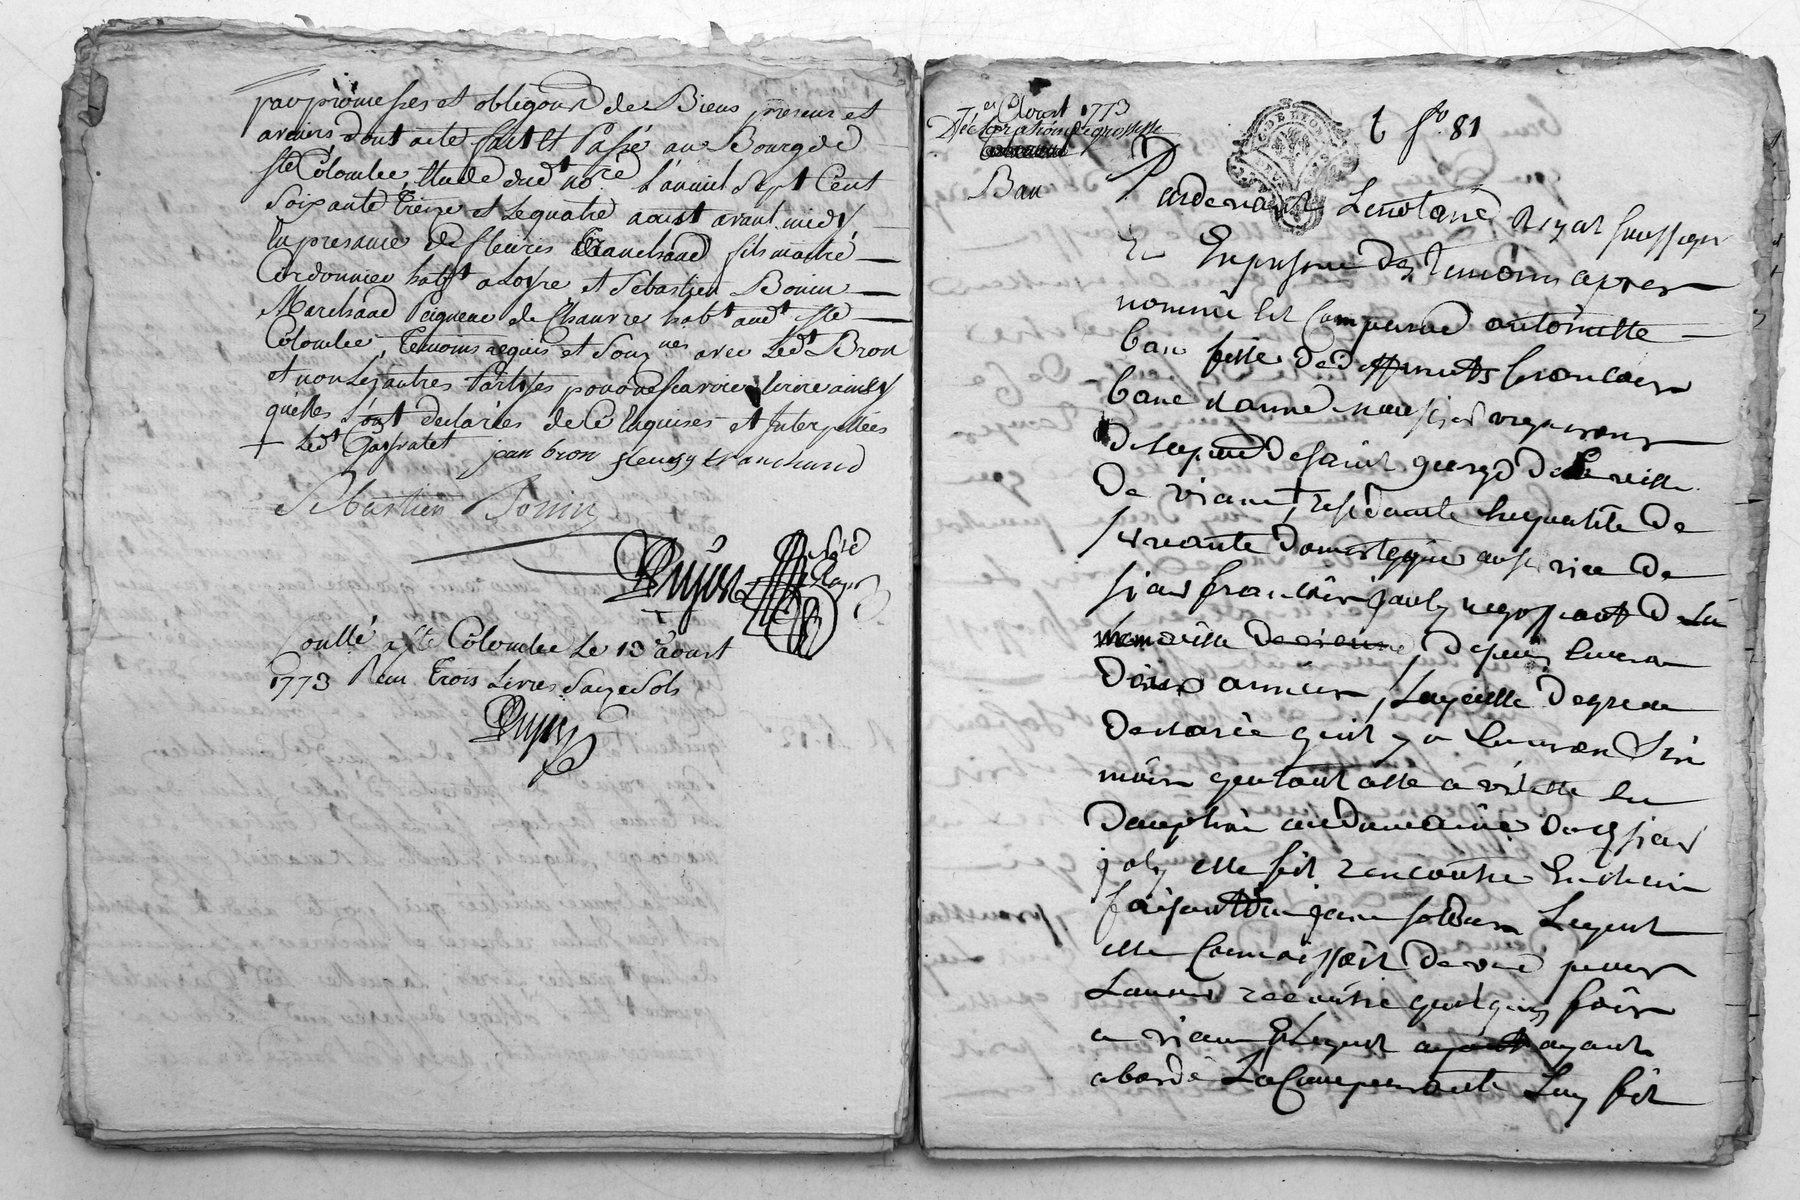 par promesses et obligaon de Biens presens et
avenirs dont acte fait et Passé au Bourg de
ste Colombe Etude dudt nore L'an mil Sept Cent
Soixante Treize et Le quatre aoust avant midy
En presence de fleuris Tranchand fils maitre
Cordonnier habt a Loyre et Sebastien Bonin
Marchand Peigneur de Chanvre habt audt ste
Colombe, Temoins requis et Sousnes avec Ledt Bron
et non Les autres Parties pour ne Scavoir Ecrire ainsy
qu'elles Sont declarées de Ce Enquises et Interpellées
+ Ledt jean bron fleury tranchand
Sebastien Bonin
Dujon nre Royal
Conllé a ste Colombe Le 13 aoust
1773 Reçu Trois Livres Seize Sols
Dujon
7e Aoust 1773
Déclaration de grossesse
Ban
G. DE LYON
t fo. 81
Pardevant Le notaire Royal soussigné
et En presence des temoins apres
nommés est Comparue antoinette
ban fille de deffunts francois
banc vigneron
de la paroisse de saint de la ville
de vienne, residante En qualité de
servante domestique au service de
sieur francois joly negotiant de la
meme ville de vienne, depuis Environ
deux années, Laquelle de gré a
declaré quil y a Environ six
mois quetant allé a vilette En
dauphiné au domaine dudt sieur
joly elle fit rencontre En chemin
faisant d'un jeune soldat Lequel
elle Connoissoit de vue pour
Lavoir recontré quelques fois
a vienne Et Lequel ayant ayant
abordé La Comparante Luy fit